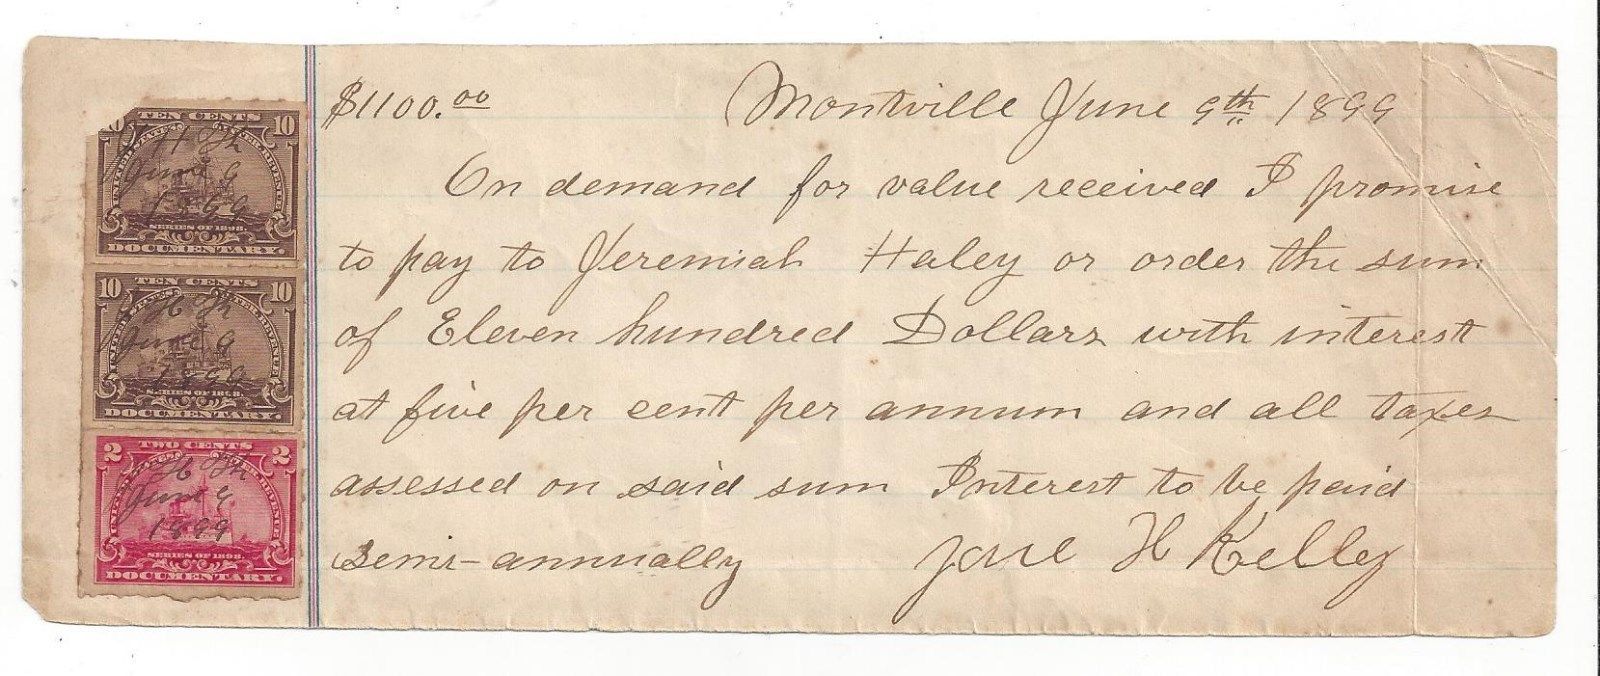 $1100.00 Montville June 9th 1899
On demand for value received I promise
to pay to Jeremiah Haley or order the sum
of Eleven hundred Dollars with interest
at five per cent per annum and all taxes
assessed on said sum Interest to be paid
semi-annually H Kelley
TEN CENTS 10
June 9
1899
SERIES OF 1898.
DOCUMENTARY.
10 TEN CENTS 10
June 9
1899
SERIES OF 1898.
DOCUMENTARY.
TWO CENTS
2 2
June 9
1899
SERIES OF 1898.
DOCUMENTARY.